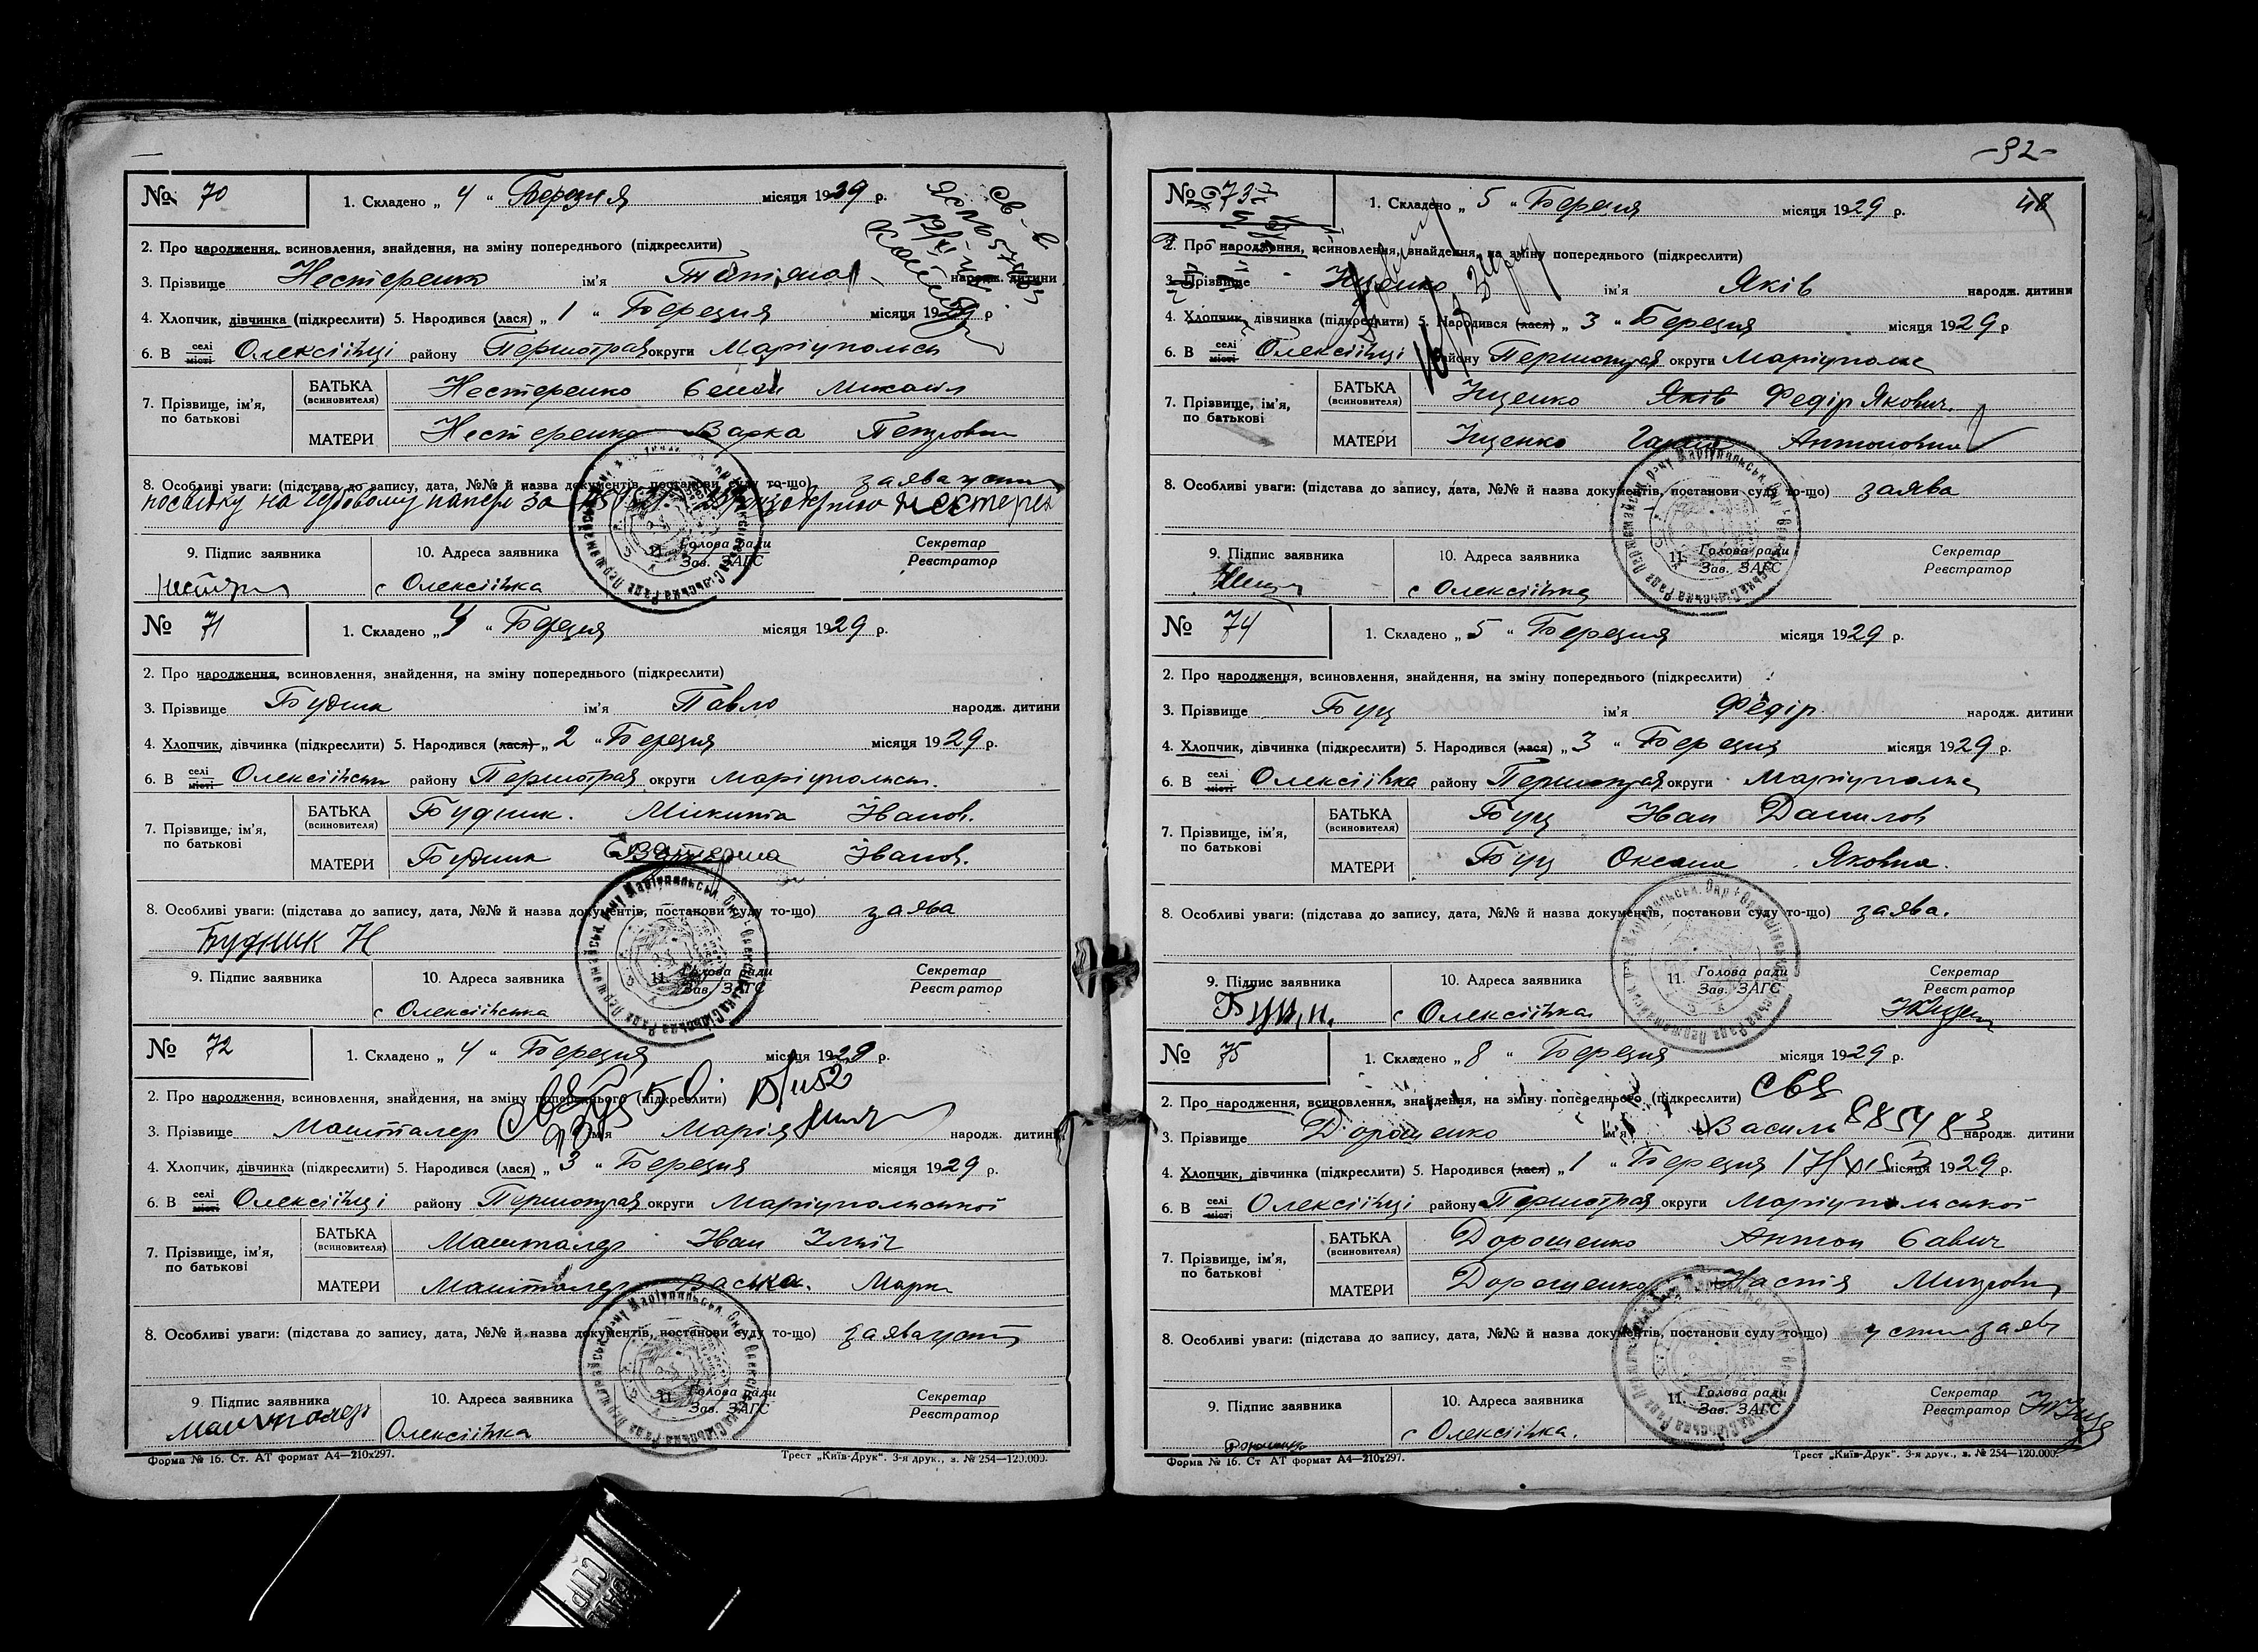 № 70
1. Складено „ 4 “ Березня місяця 1929 р.
2. Про народження, всиновлення, знайдення, на зміну попереднього (підкреслити)
3. Прізвище Нестеренко ім'я народж. дитини
4. Хлопчик, дівчинка (підкреслити) 5. Народився (лася) „ 1 “ Березня місяця 1929 р
6. В селі місті Олексіївці району Першотрав округи Маріупольсь
7. Прізвище, ім'я, по батькові
БАТЬКА (всиновителя) Нестеренко Семен Михайл
МАТЕРИ Нестеренко Варка Петровн
8. Особливі уваги: (підстава до запису, дата, №№ й назва документів, постанови суду то-що) заява устн
9. Підпис заявника
10. Адреса заявника
11. Голова ради Зав. ЗАГС
Секретар Реєстратор
с Олексіївка
№ 71
1. Складено „ 4 “ Березня місяця 1929 р.
2. Про народження, всиновлення, знайдення, на зміну попереднього (підкреслити)
3. Прізвище Будник ім'я Павло народж. дитини
4. Хлопчик, дівчинка (підкреслити) 5. Народився (лася) „ 2 “ Березня місяця 1929 р.
6. В селі місті району Першотрав округи Маріупольсь.
7. Прізвище, ім'я, по батькові
БАТЬКА (всиновителя) Будник. Микита Іванов.
МАТЕРИ Будник Іванов.
8. Особливі уваги: (підстава до запису, дата, №№ й назва документів, постанови суду то-що) заява
Будник Н
9. Підпис заявника
10. Адреса заявника
11. Голова ради Зав. ЗАГС
Секретар Реєстратор
с Олексіївська
№ 72
1. Складено „ 4 “ Березня місяця 1929 р.
2. Про народження, всиновлення, знайдення, на зміну попереднього (підкреслити)
3. Прізвище Машталер ім'я Марія народж. дитини
4. Хлопчик, дівчинка (підкреслити) 5. Народився (лася) „ 3 “ Березня місяця 1929 р.
6. В селі місті Олексіївці району Першотрав округи Маріупольської
7. Прізвище, ім'я, по батькові
БАТЬКА (всиновителя) Машталер Іван Ілліч
МАТЕРИ Машталер Васька. Марк
8. Особливі уваги: (підстава до запису, дата, №№ й назва документів, постанови суду то-що) заява уст
9 Підпис заявника
10. Адреса заявника
11. Голова ради Зав. ЗАГС
Секретар Реєстратор
Машталер
Олексіївка
Форма № 16. Ст. АТ формат А4—210х297.
Трест „Київ-Друк“. 3-я друк., з. № 254—120.000.
-92-
48
№ 73
1. Складено „ 5 “ Березня місяця 1929 р.
2. Про народження, всиновлення, знайдення, на зміну попереднього (підкреслити)
3. Прізвище Іщенко ім'я Яків народж. дитини
4. Хлопчик, дівчинка (підкреслити) 5. Народився (лася) „ 3 “ Березня місяця 1929 р
6. В селі місті Олексіївці району Першотрав округи Маріупольс
7. Прізвище, ім'я, по батькові
БАТЬКА (всиновителя) Іщенко Яків Федір Якович.
МАТЕРИ Іщенко Антоновна
8. Особливі уваги: (підстава до запису, дата, №№ й назва документів, постанови суду то-що) заява
9. Підпис заявника
10. Адреса заявника
11. Голова ради Зав. ЗАГС
Секретар Реєстратор
с Олексіївка
№ 74
1. Складено „ 5 “ Березня місяця 1929 р.
2. Про народження, всиновлення, знайдення, на зміну попереднього (підкреслити)
3. Прізвище Буц ім'я Федір народж. дитини
4. Хлопчик, дівчинка (підкреслити) 5. Народився (лася) „ 3 “ Березня місяця 1929 р.
6. В селі місті Олексіївка району Першотрав округи Маріупольс
7. Прізвище, ім'я, по батькові
БАТЬКА (всиновителя) Буц Іван Данилов
МАТЕРИ Буц Оксана Яковна.
8. Особливі уваги: (підстава до запису, дата, №№ й назва документів, постанови суду то-що) заява.
9. Підпис заявника
10. Адреса заявника
11. Голова ради Зав. ЗАГС
Секретар Реєстратор
с Олексіївка
№ 75
1. Складено „ 8 “ Березня місяця 1929 р.
2. Про народження, всиновлення, знайдення, на зміну попереднього (підкреслити)
3. Прізвище Дорошенко ім'я Василь народж. дитини
4. Хлопчик, дівчинка (підкреслити) 5. Народився (лася) „ 1 “ Березня місяця 1929 р.
6. В селі місті Олексіївці району Першотрав округи Маріупольської
7. Прізвище, ім'я, по батькові
БАТЬКА (всиновителя) Дорошенко Антон Савич
МАТЕРИ Дорошенко Настія
8. Особливі уваги: (підстава до запису, дата, №№ й назва документів, постанови суду то-що) устн заяв
9. Підпис заявника
10. Адреса заявника
11. Голова ради Зав. ЗАГС
Секретар Реєстратор
с Олексіївка.
Форма № 16. Ст АТ формат А4—210х297.
Трест „Київ-Друк“. 3-я друк., з. № 254—120.000.